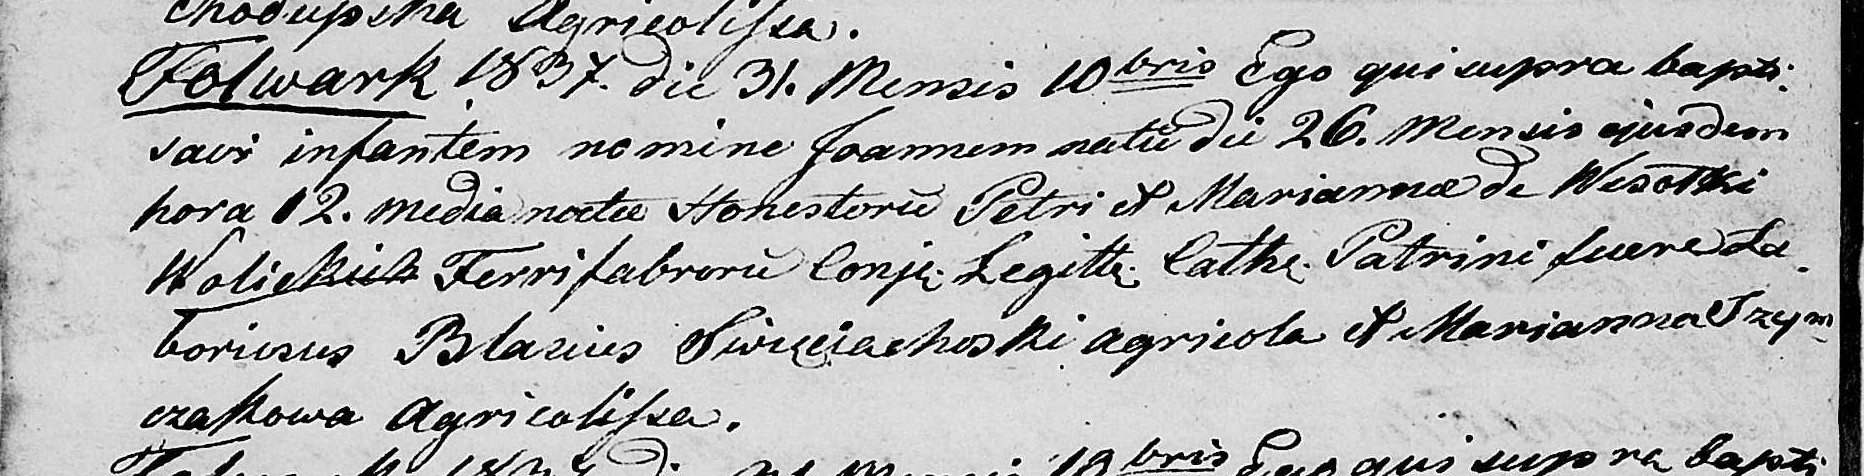 chodupska Agricolissa.
Folwark 1837. die 31. Mensis 10bris Ego qui supra bapti.
savi infantem nomine Joannem natū die 26. Mensis ejusdem
hora 12. media noctu Honestorū Petri et Mariannæ de Wesołki
Wolickich Ferrifabrorū Conję. Legittę. Cathę. Patrini fuere La.
boriosus Blasius Swięciachoski agricola et Marianna Szym
czakowa Agricolissa.
1837 die 31 Mensis 10bris Ego qui supra bapti